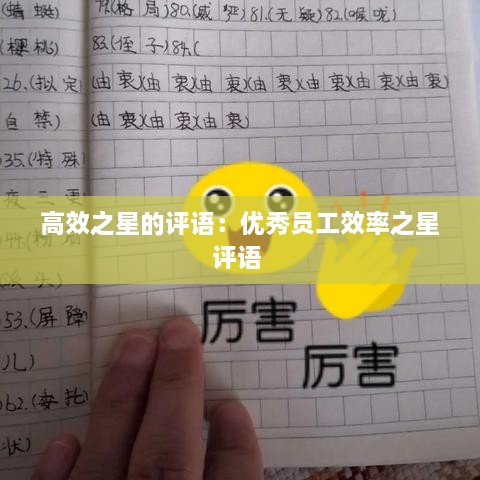 (蜻蜓)
(樱桃)
26.(拟定
自禁)
35.(特殊
夜三更
53.(屏障
儿)
62.(委托)
状)
79.(格局)80.(威严)81.(无疑)82.(喉咙)
83.(侄子)84.(
(由衷)(由衷)(由衷)(由衷)(由衷)(由衷)(由衷)
(由衷)(由衷)(由衷)
高效之星的评语：优秀员工效率之星
评语
厉害
厉害